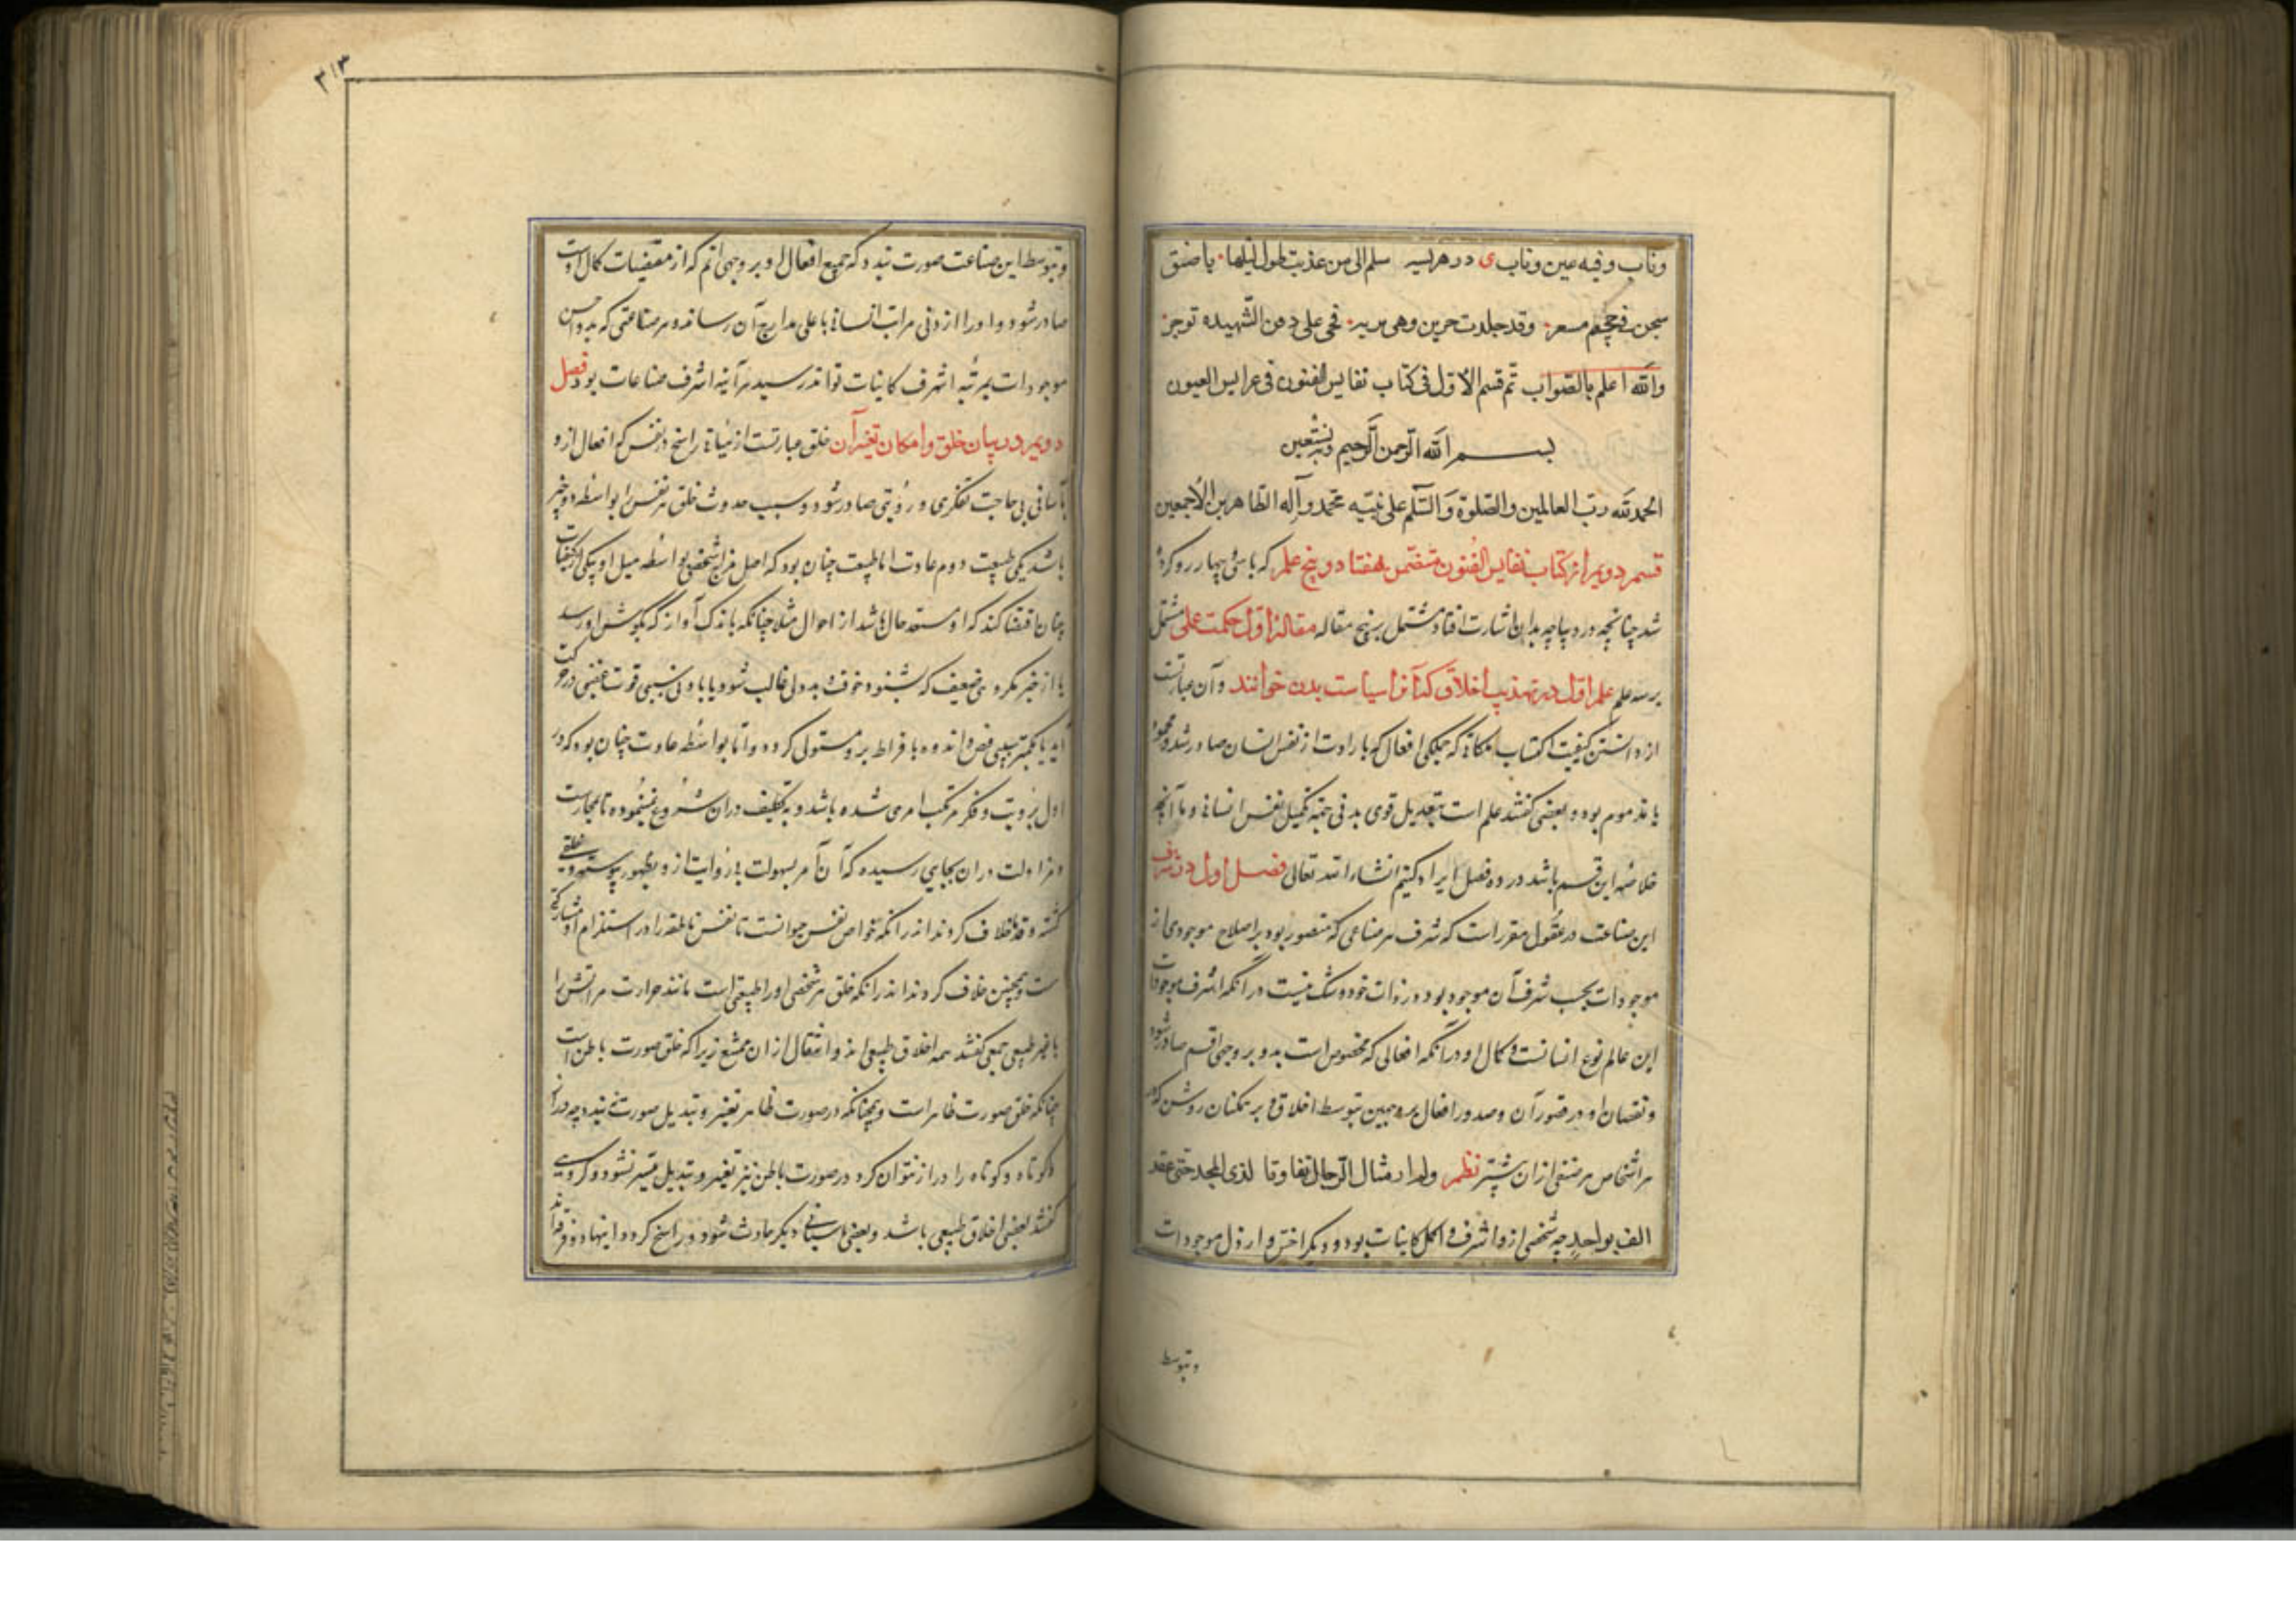 وناب وفیه عین وناب ی در هریسه سلم الی من عذبت طول لیلها یا ضیق
سجن فی جحیم مسعر وقد جلدت حین وهی بریه فحی علی دفن الشهیده توجز
والله اعلم بالصواب تم قسم الاول فی کتاب نفایس الفنون فی عرایس العیون
بسم الله الرحمن الرحیم وبه نستعین
الحمد لله رب العالمین والصلوة والسلم علی نبیه محمد وآله الطاهرین الاجمعین
قسم دویم از کتاب نفایس الفنون متضمن هفتاد و پنج علم که باسی و چهار رو کرده
شد چنانچه در دیباچه بدان اشارت افتاد مشتمل بر پنج مقاله مقاله اول حکمت عملی مشتمل
بر سه علم علم اول در تهذیب اخلاق که آنرا سیاست بدن خوانند و آن عبارتست
از دانستن کیفیت اکتساب ملکاتی که جملگی افعال که بارادت از نفس انسان صادر شود محمود
یا مذموم بود و بعضی گفتند علم است بتعدیل قوی بدنی جهة تکمیل نفس انسانی و ما آنچه
خلاصه این قسم باشد در ده فصل ایراد کنیم انشاء الله تعالی فصل اول در شرف
این صناعت در عقول مقرر است که شرف هر صناعی که مقصور بود بر اصلاح موجودی از
موجودات بحسب شرف آن موجود بود در ذات خود و شک نیست در آنکه اشرف موجودات
این عالم نوع انسانست و کمال او در آنکه افعالی که مخصوص است بدو بر وجهی اتم صادر شود
و نقصان او در قصور آن و صدور افعال بر وجهین بتوسط اخلاق و بر همکنان روشن که در
هر اشخاص هر صنفی ازان بیشتر نظم ولم ار امثال الرجال تفاوتا لذی المجد حتی عد
الف بواحد چه شخصی ازو اشرف و اکمل کاینات بود و دیگر اخس و ارذل موجودات
وبتوسط
۳۱۳
وبتوسط این صناعت صورت بندد که جمیع افعال او بر وجهی اتم که از مقتضیات کمال اوست
صادر شود و او را از ادنی مراتب انسانی باعلی مدارج آن رساند و هر صناعتی که بدو اخس
موجودات بمرتبه اشرف کاینات تواند رسید هر آینه اشرف صناعات بود فصل
دویم در بیان خلق وامکان تغیر آن خلق عبارتست از هیأة راسخ در نفس که افعال ازو
بآسانی بی حاجت تفکری و رویتی صادر شود و سبب حدوث خلق هر نفس را بواسطه دو چیز
باشد یکی طبیعت دوم عادت اما طبیعت چنان بود که اصل مزاج شخصی بواسطه میل او بیکی از کیفیات
چنان اقتضا کند که او مستعد حالی باشد از احوال مثلا چنانکه باندک آواز که بگوش او رسد
یا از خبر مکروهی ضعیف که بشنود خوف بدو غالب شود یا بادنی سببی قوت غضبی در حرکت
آید یا بکمتر سببی قبض و اندوه بافراط برو مستولی گردد و اما بواسطه عادت چنان بود که در
اول برویت و فکر مرتکب امری شده باشد و به تکلیف دران شروع نموده تا بممارست
و مزاولت دران بجایی رسیده که آن امر بسهولت بی رویت ازو بظهور پیوسته و خلقی
گشته و قدما خلاف کرده‌اند در آنکه خواص نفس حیوانست تا نفس ناطقه را در استلزام او مشارکتی
ست و همچنین خلاف کرده‌اند در آنکه خلق هر شخصی او را طبیعی است مانند حرارت مر آتش را
یا غیر طبیعی جمعی گفتند همه اخلاق طبیعی اند و انتقال ازان ممتنع زیرا که خلق صورت باطن است
چنانکه خلق صورت ظاهر است و همچنانکه در صورت ظاهر تغییر و تبدیل صورت نبندد چه دراز
را کوتاه و کوتاه را دراز نتوان کرد در صورت باطن نیز تغییر و تبدیل میسر نشود و گروهی
گفتند بعضی اخلاق طبیعی باشد و بعضی باسبابی دیگر حادث شود و راسخ گردد و اینها دو فرقه‌اند